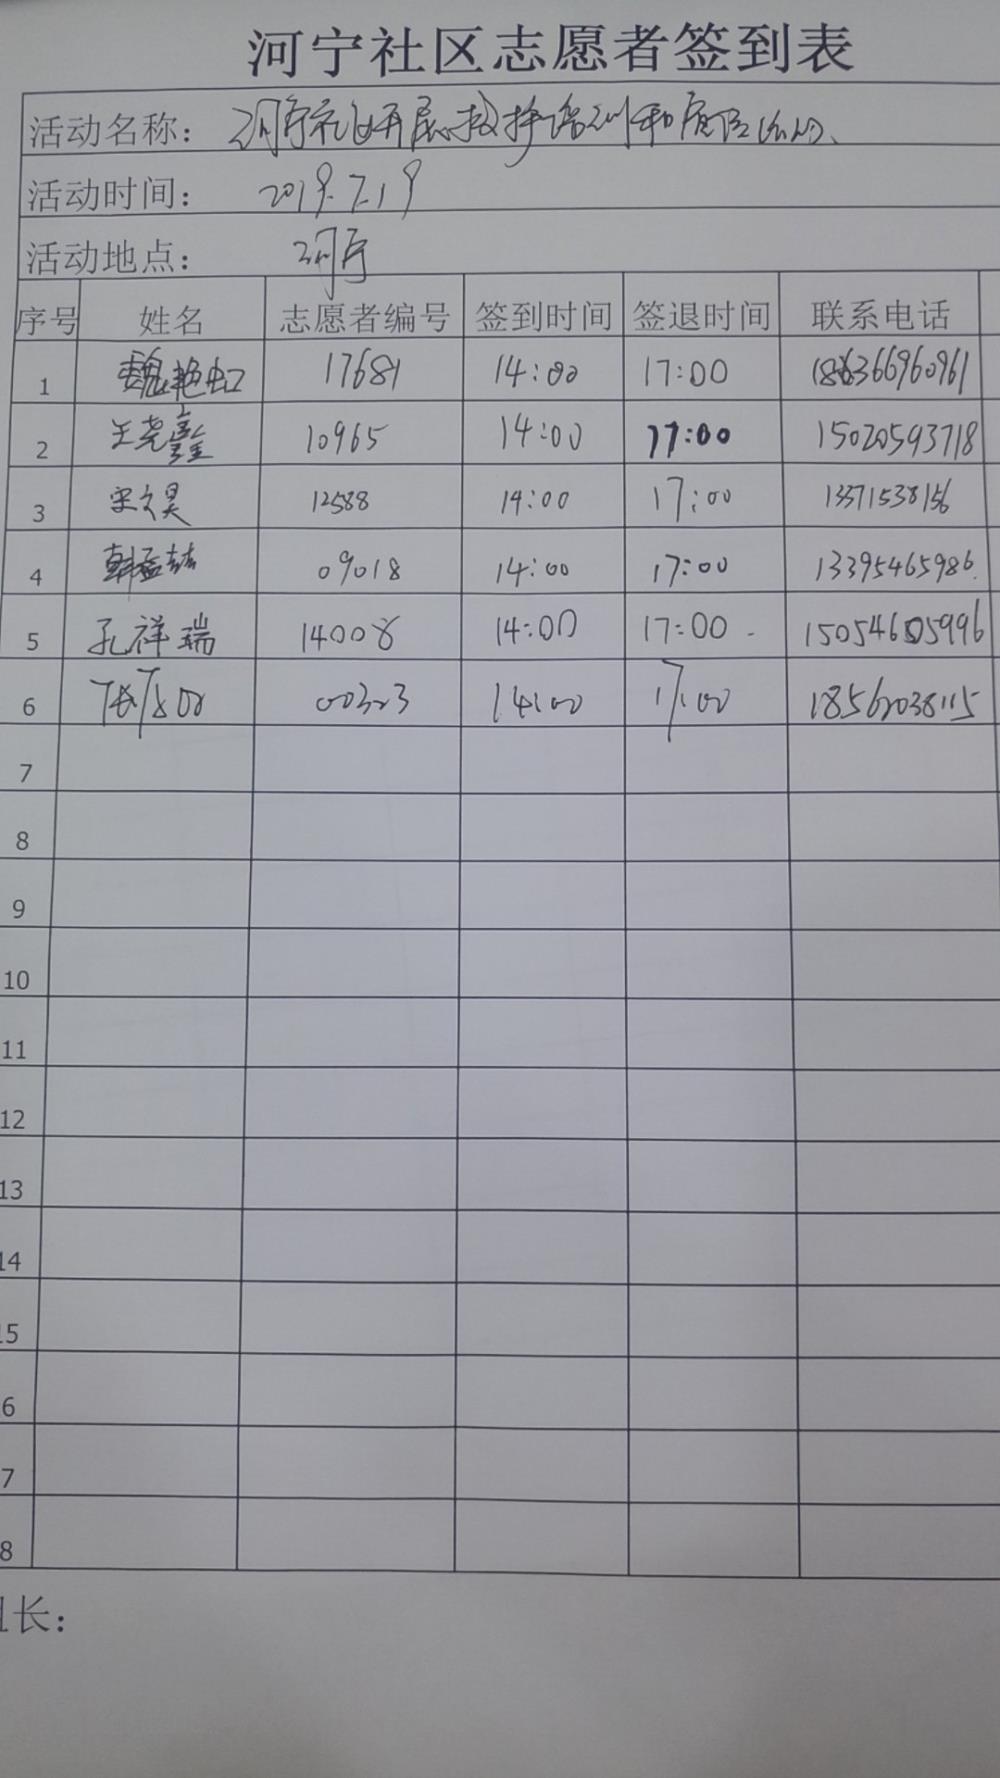 河宁社区志愿者签到表
活动名称： 河宁社区开展救护培训和
活动时间： 2019.7.19
活动地点： 河宁
序号 姓名 志愿者编号 签到时间 签退时间 联系电话
1 魏艳虹 17681 14:00 17:00
2 王尧鑫 10965 14:00 17:00 15020593718
3 宋文昊 12588 14:00 17:00 13371538156
4 韩孟喆 09018 14:00 17:00 13395465986
5 孔祥瑞 14008 14:00 17:00 15054605996
6 00323 14:00 17:00 18562038115
7
8
9
10
11
12
13
14
15
6
7
8
长：